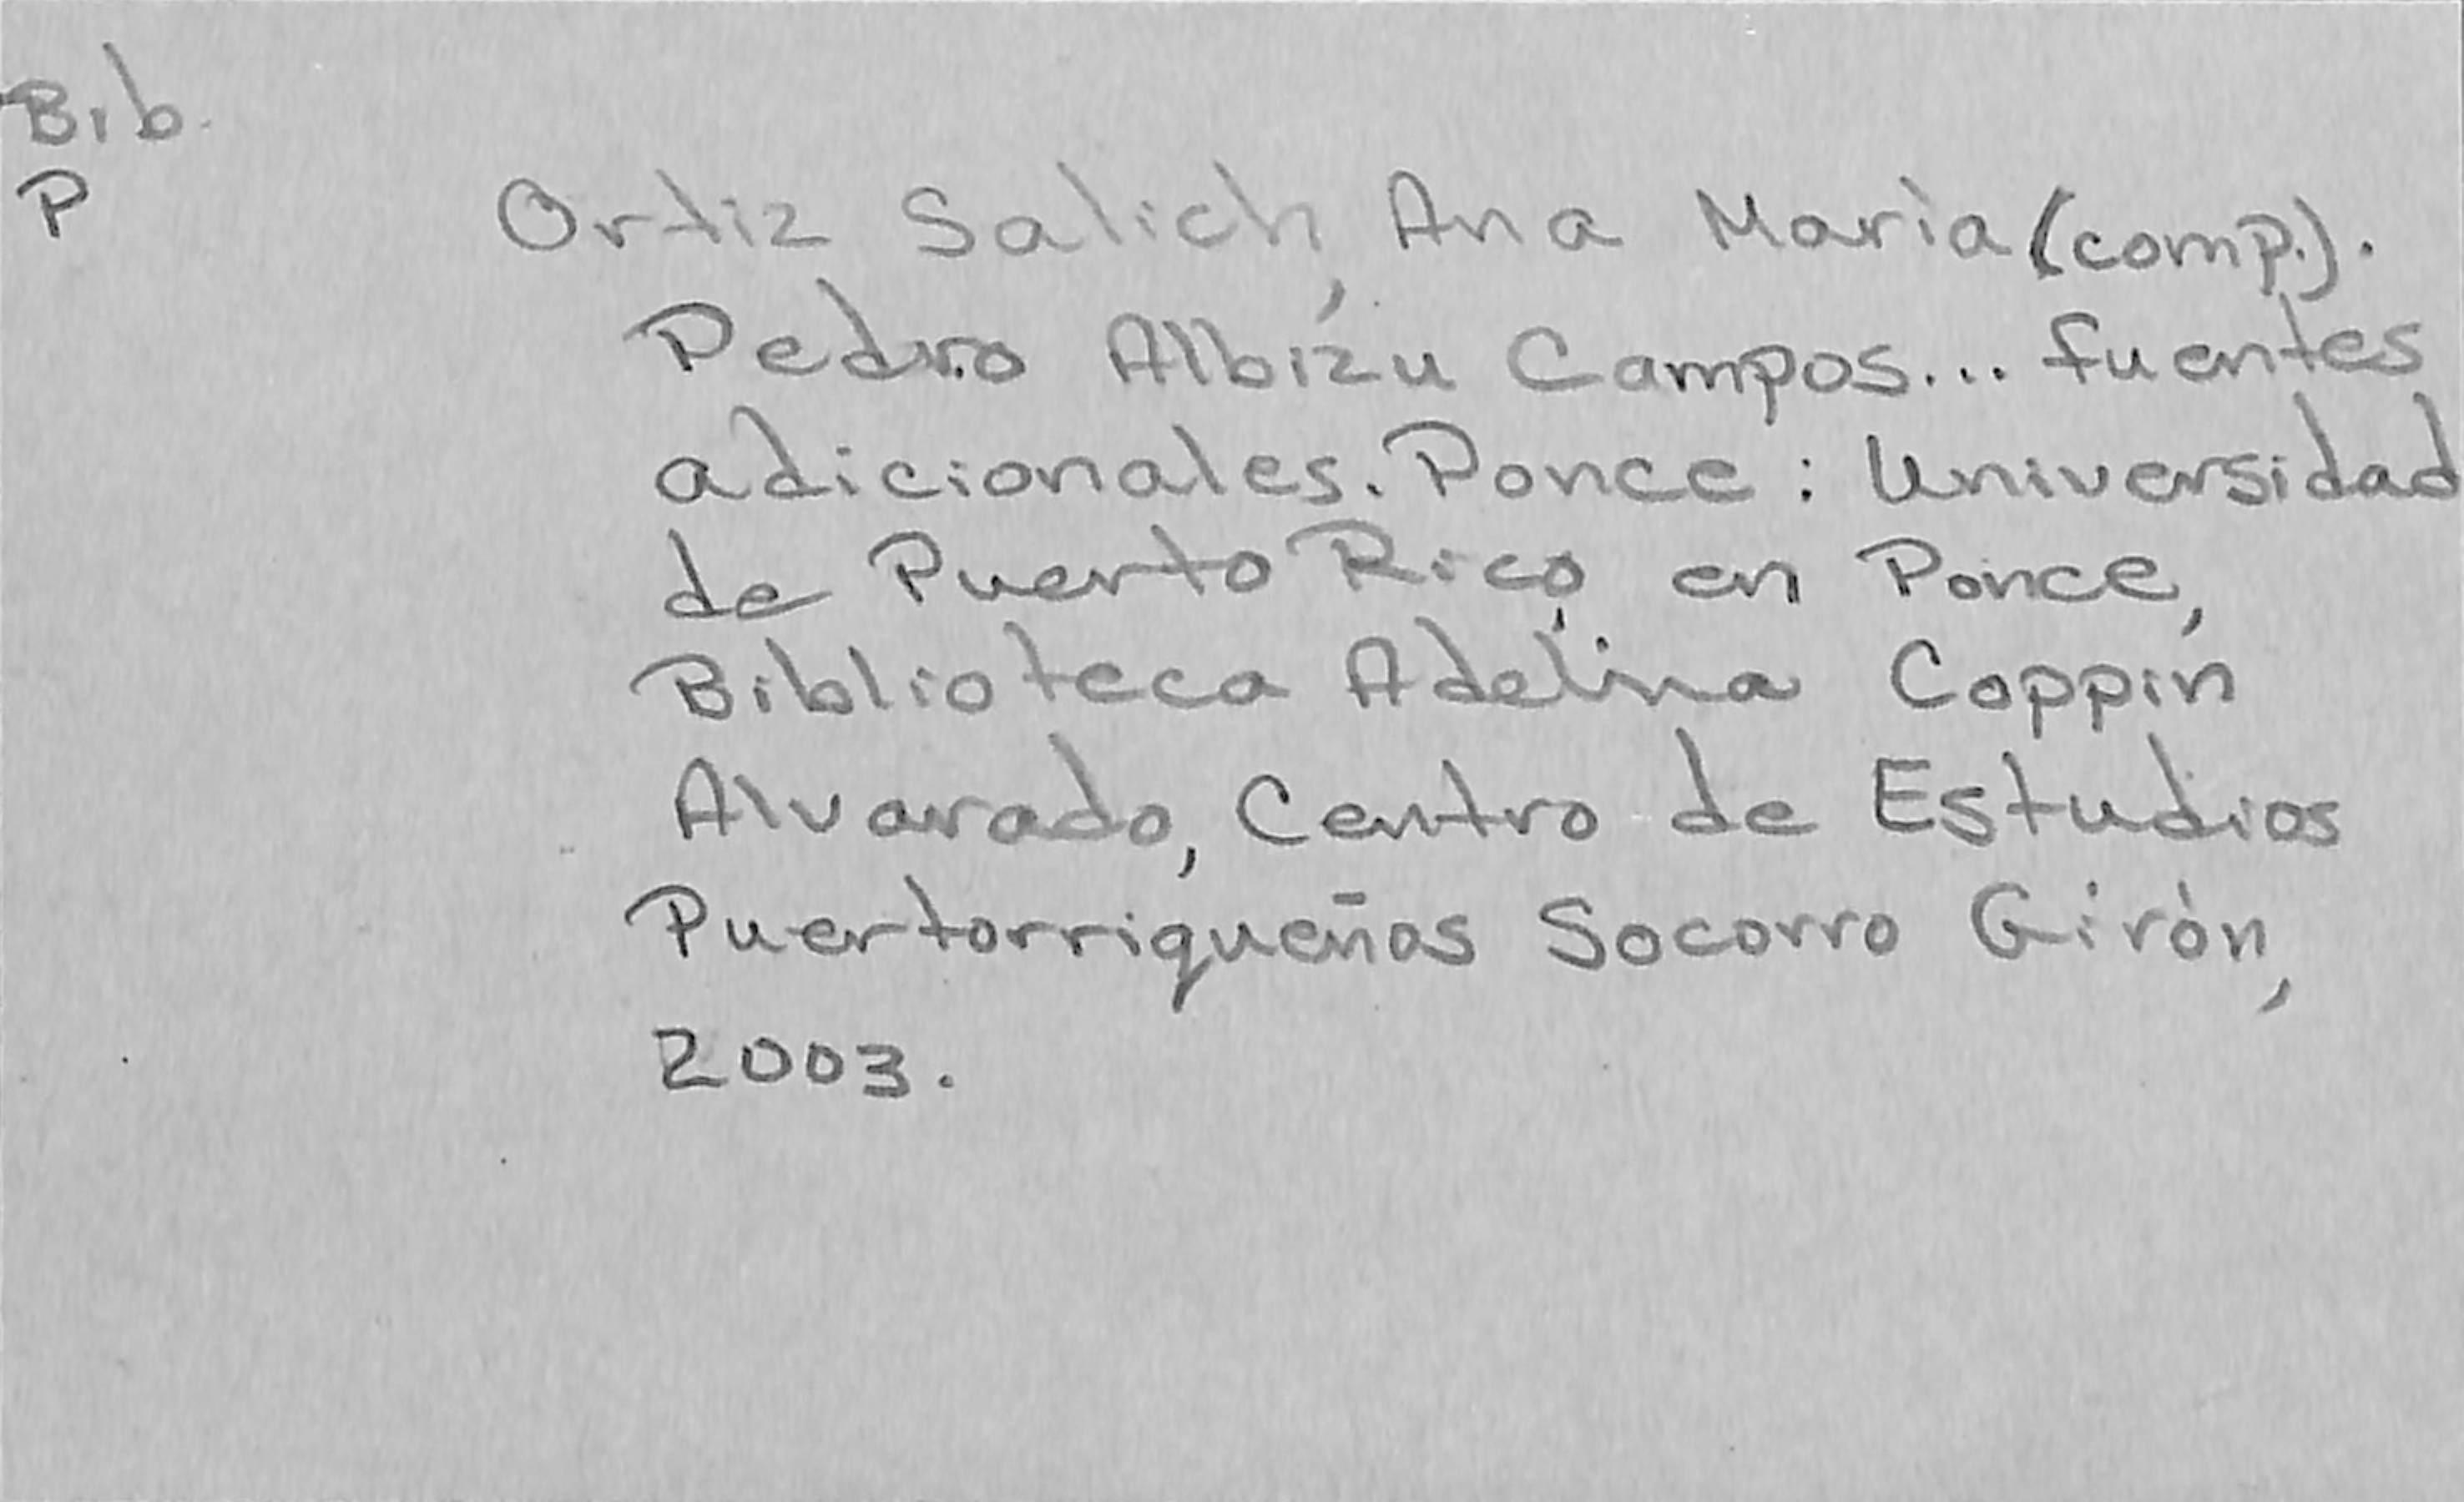 Bib.
P
Ortiz Salich, Ana María (comp.).
Pedro Albízu Campos... fuentes
adicionales. Ponce : Universidad
de Puerto Rico, en Ponce,
Biblioteca Adelina Coppín
Alvarado, Centro de Estudios
Puertorriqueños Socorro Girón,
2003.